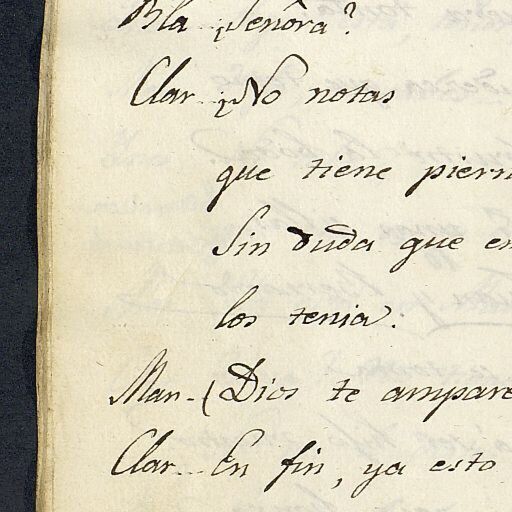 Bla ¿Señora?
Clar ¿No notas
que tiene piern
Sin duda que en
los tenia.
Man- (Dios te ampare
Clar... En fin, ya esto